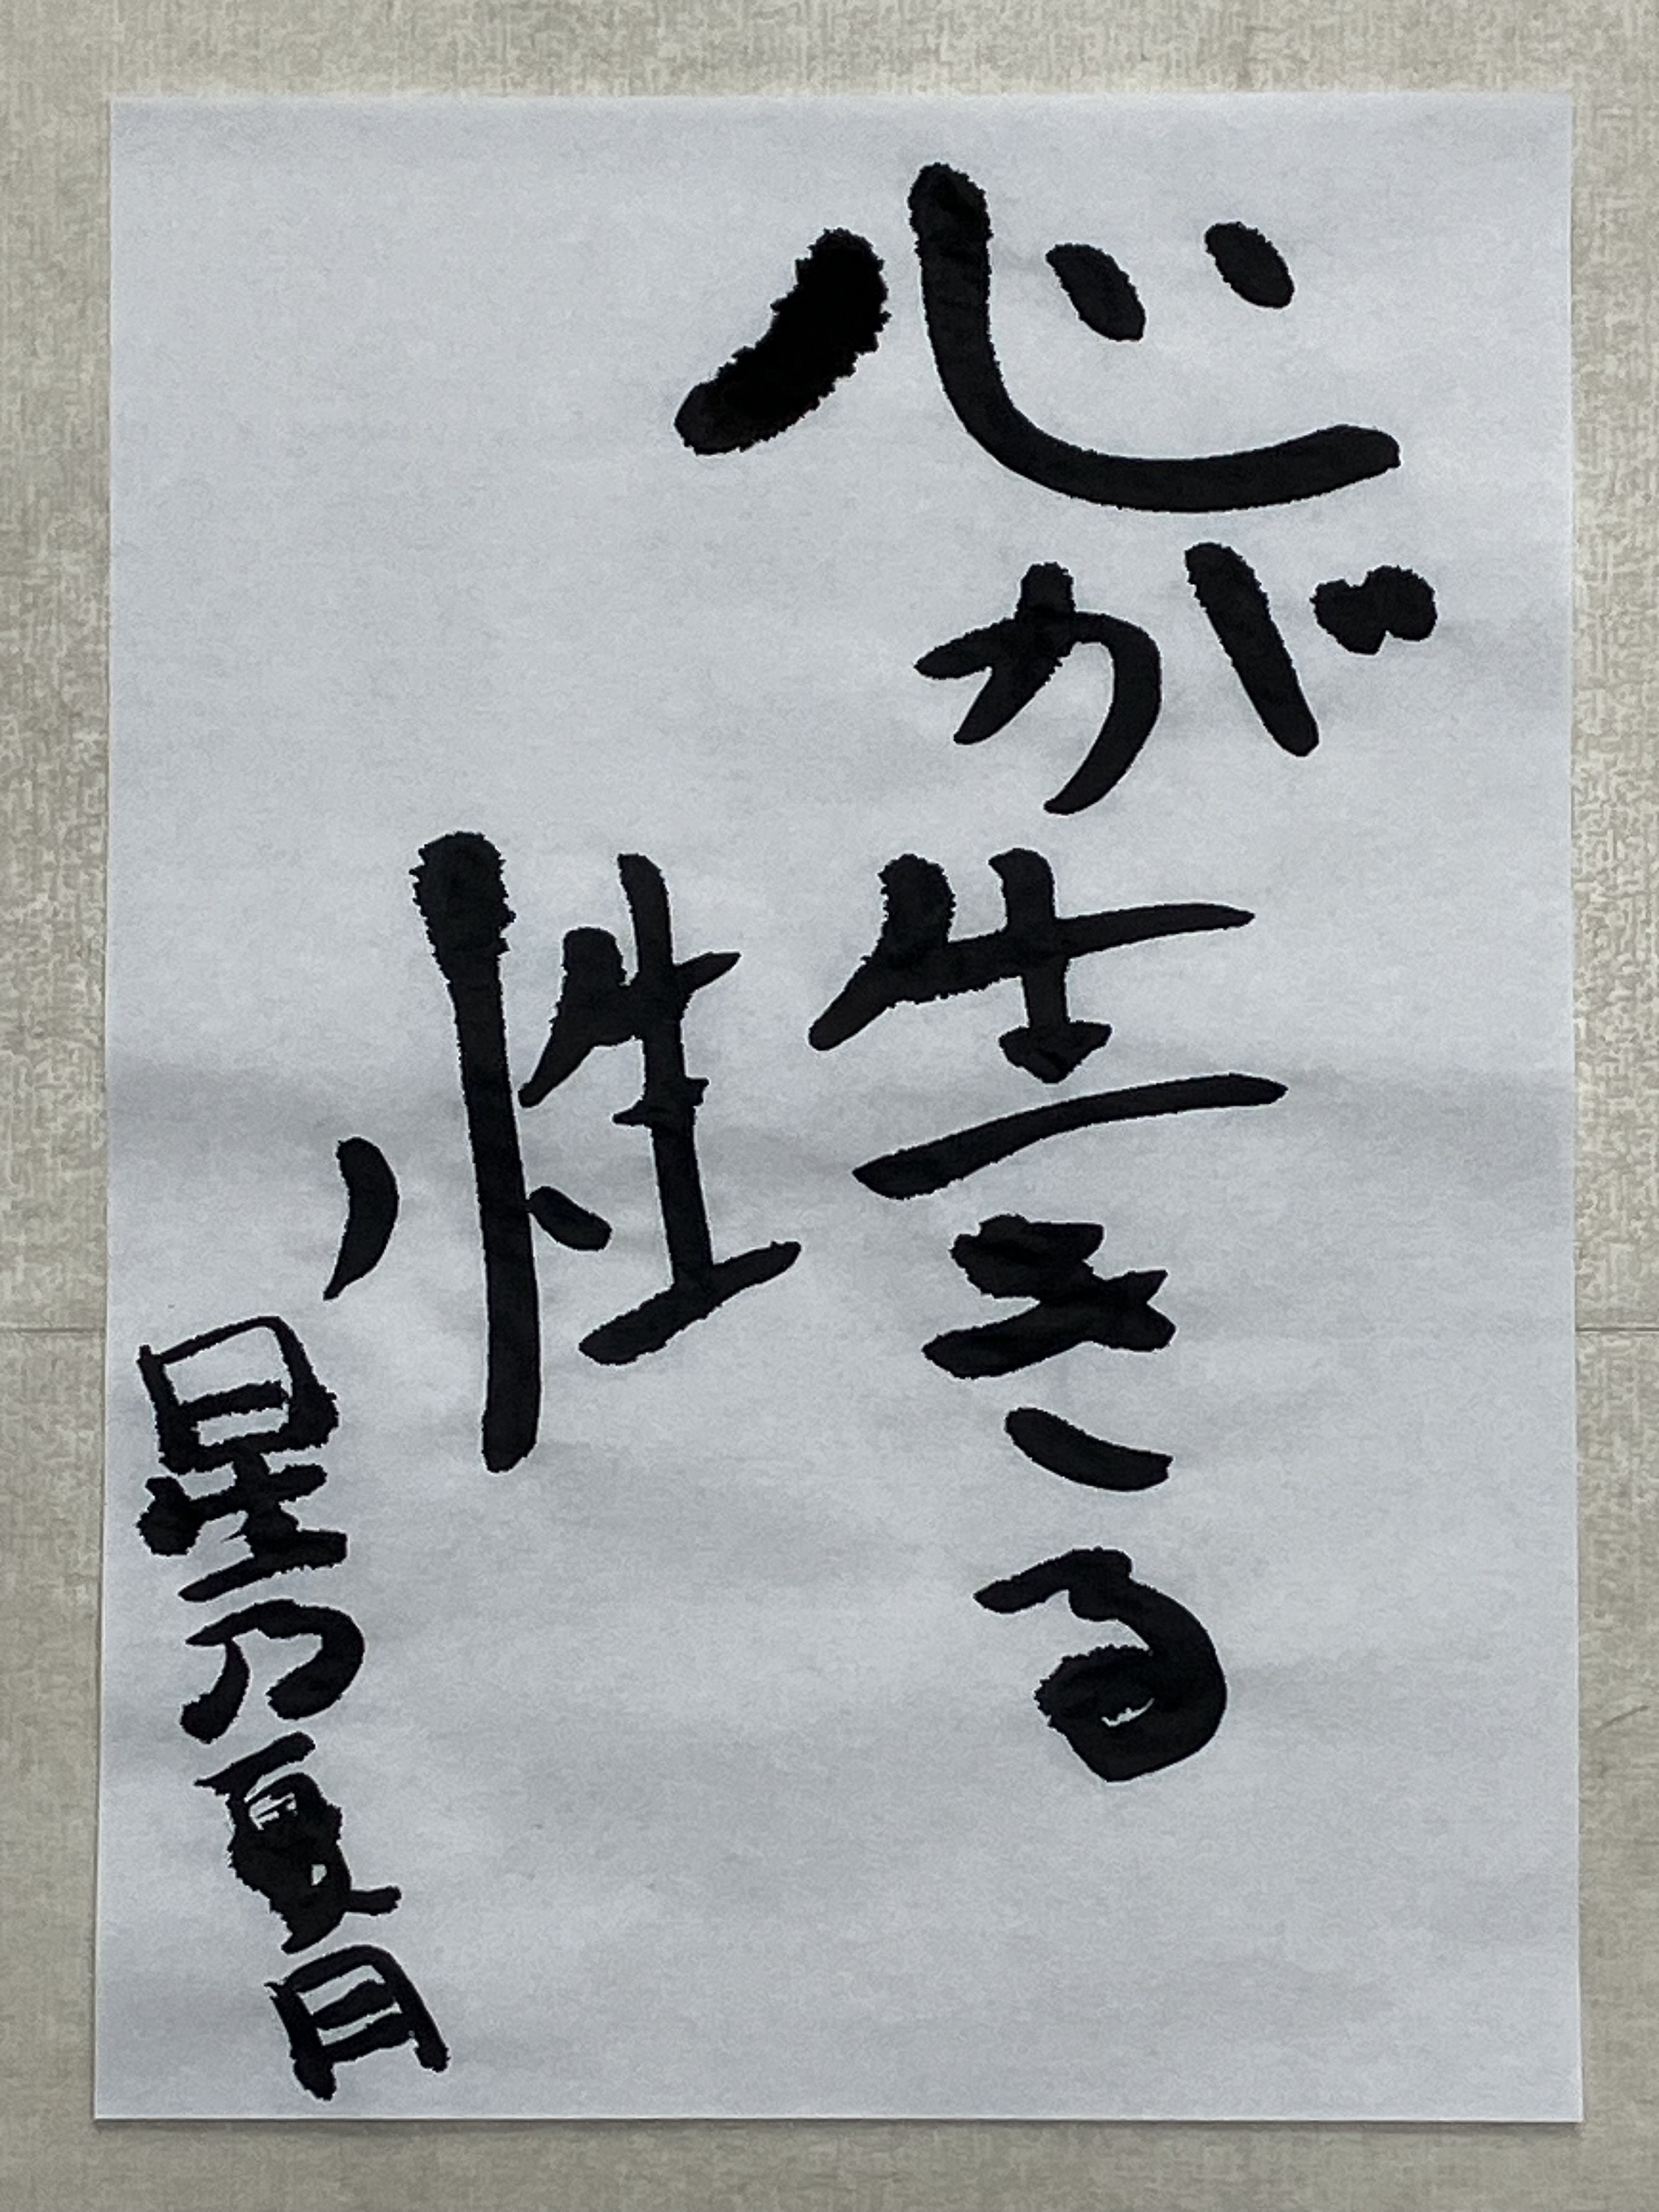 心が生きる
性
星乃夏目